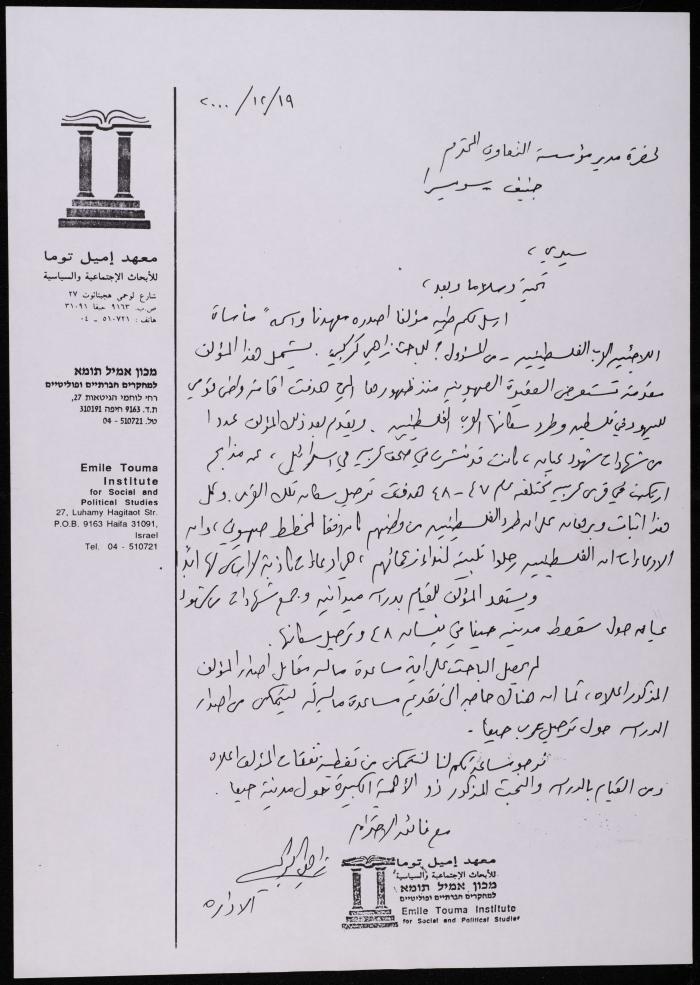 ٢٠٠٠/١٢/١٩
حضرة مدير مؤسسة التعاون المحترم
جنيف - سويسرا
سيدي،
تحية وسلاما وبعد،
ارسل لكم طيه مؤلفا اصدره معهدنا واسمه "مأساة
اللاجئين العرب الفلسطينيين - من المسؤول؟ للباحث زاهي كركبي. يشتمل هذا المؤلف
مقدمة تستعرض العقيدة الصهيونية منذ ظهورها التي هدفت اقامة وطن قومي
لليهود في فلسطين وطرد سكانها العرب الفلسطينيين. ويقدم بعد ذلك المؤلف عددا
من شهادات شهود عيان، كانت قد نشرت في صحف عربية في اسرائيل، عن مذابح
ارتكبت في قرى عربية مختلفة عام ٤٧-٤٨ هدفت ترحيل سكان تلك القرى. وكل
هذا اثبات وبرهان على ان طرد الفلسطينيين من وطنهم كان وفقا لمخطط صهيوني، وان
الادعاءات ان الفلسطينيين رحلوا تلبية لنداء زعمائهم، هي ادعاءات كاذبة لا اساس لها ابدا
ويستعد المؤلف للقيام بدراسة ميدانية وجمع شهادات من شهود
عيان حول سقوط مدينة حيفا في نيسان ٤٨ وترحيل سكانها.
لم يحصل الباحث على اية مساعدة مالية مقابل اصدار المؤلف
المذكور اعلاه، كما ان هناك حاجة الى تقديم مساعدة مالية له ليتمكن من اصدار
الدراسة حول ترحيل عرب حيفا.
نرجو مساعدتكم لنا لنتمكن من تغطية نفقات المؤلف اعلاه
ومن القيام بالدراسة والبحث المذكور ذو الأهمية الكبيرة حول مدينة حيفا.
مع فائق الاحترام
زاهي كركبي
الادارة
معهد إميل توما
للأبحاث الإجتماعية والسياسية
شارع لوحمي هجيتاؤت ٢٧
ص.ب. ٩١٦٣ حيفا ٣١٠٩١
هاتف: ٥١٠٧٢١ - ٠٤
מכון אמיל תומא
למחקרים חברתיים ופוליטיים
רחי לוחמי הגיטאות 27,
ת.ד. 9163 חיפה 310191
טל. 510721 - 04
Emile Touma
Institute
for Social and
Political Studies
27, Luhamy Hagitaot Str.
P.O.B. 9163 Haifa 31091,
Israel
Tel. 04 - 510721
معهد إميل توما
للأبحاث الإجتماعية والسياسية
מכון אמיל תומא
למחקרים חברתיים ופוליטיים
Emile Touma Institute
for Social and Political Studies